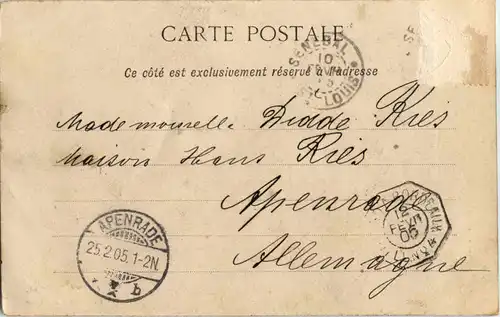 CARTE POSTALE
Ce côté est exclusivement réservé à l'adresse
SENEGAL
10
ST LOUIS
Mademoiselle Didde Ries
Maison Hans Ries
Apenrade
Allemagne
APENRADE
25.2.05.1-2N.
b
BORDEAUX